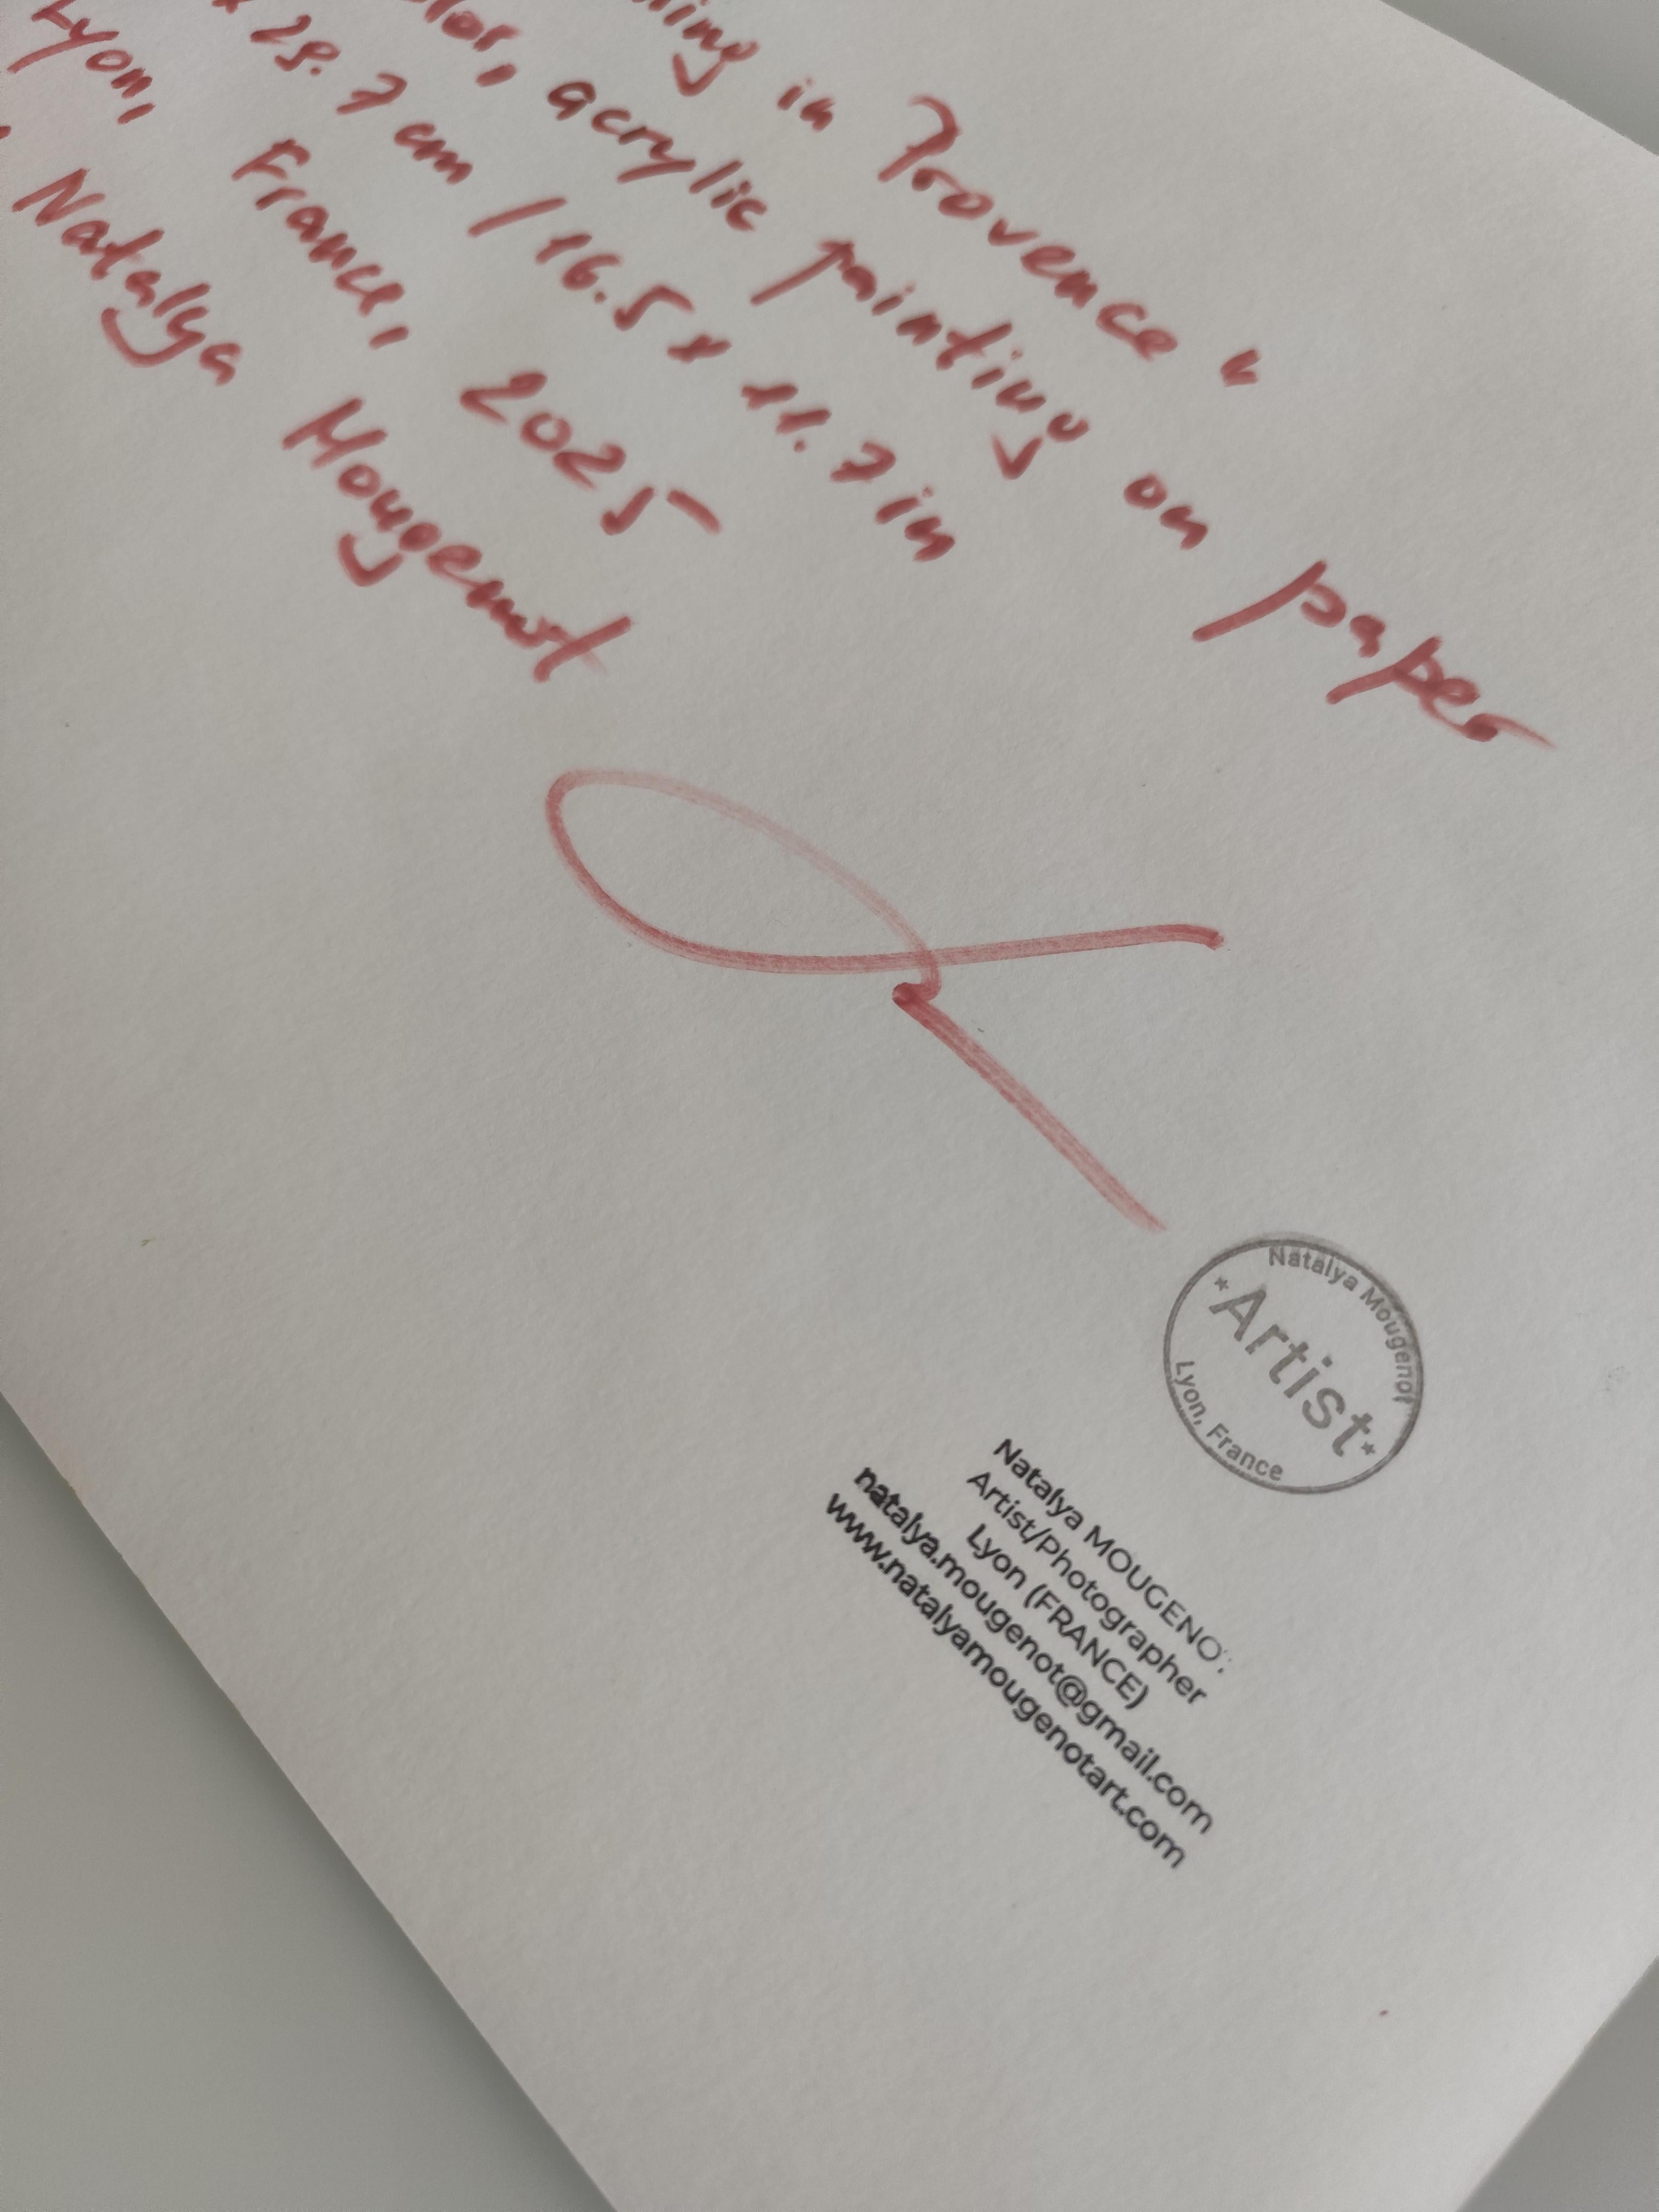 in Provence "
acrylic painting on paper
29.7 cm / 16.5 x 11.7 in
Lyon, France, 2025
Natalya Mougenot
Natalya Mougenot
*Artist*
Lyon, France
Natalya MOUGENOT
Artist/Photographer
Lyon (FRANCE)
natalya.mougenot@gmail.com
www.natalyamougenotart.com